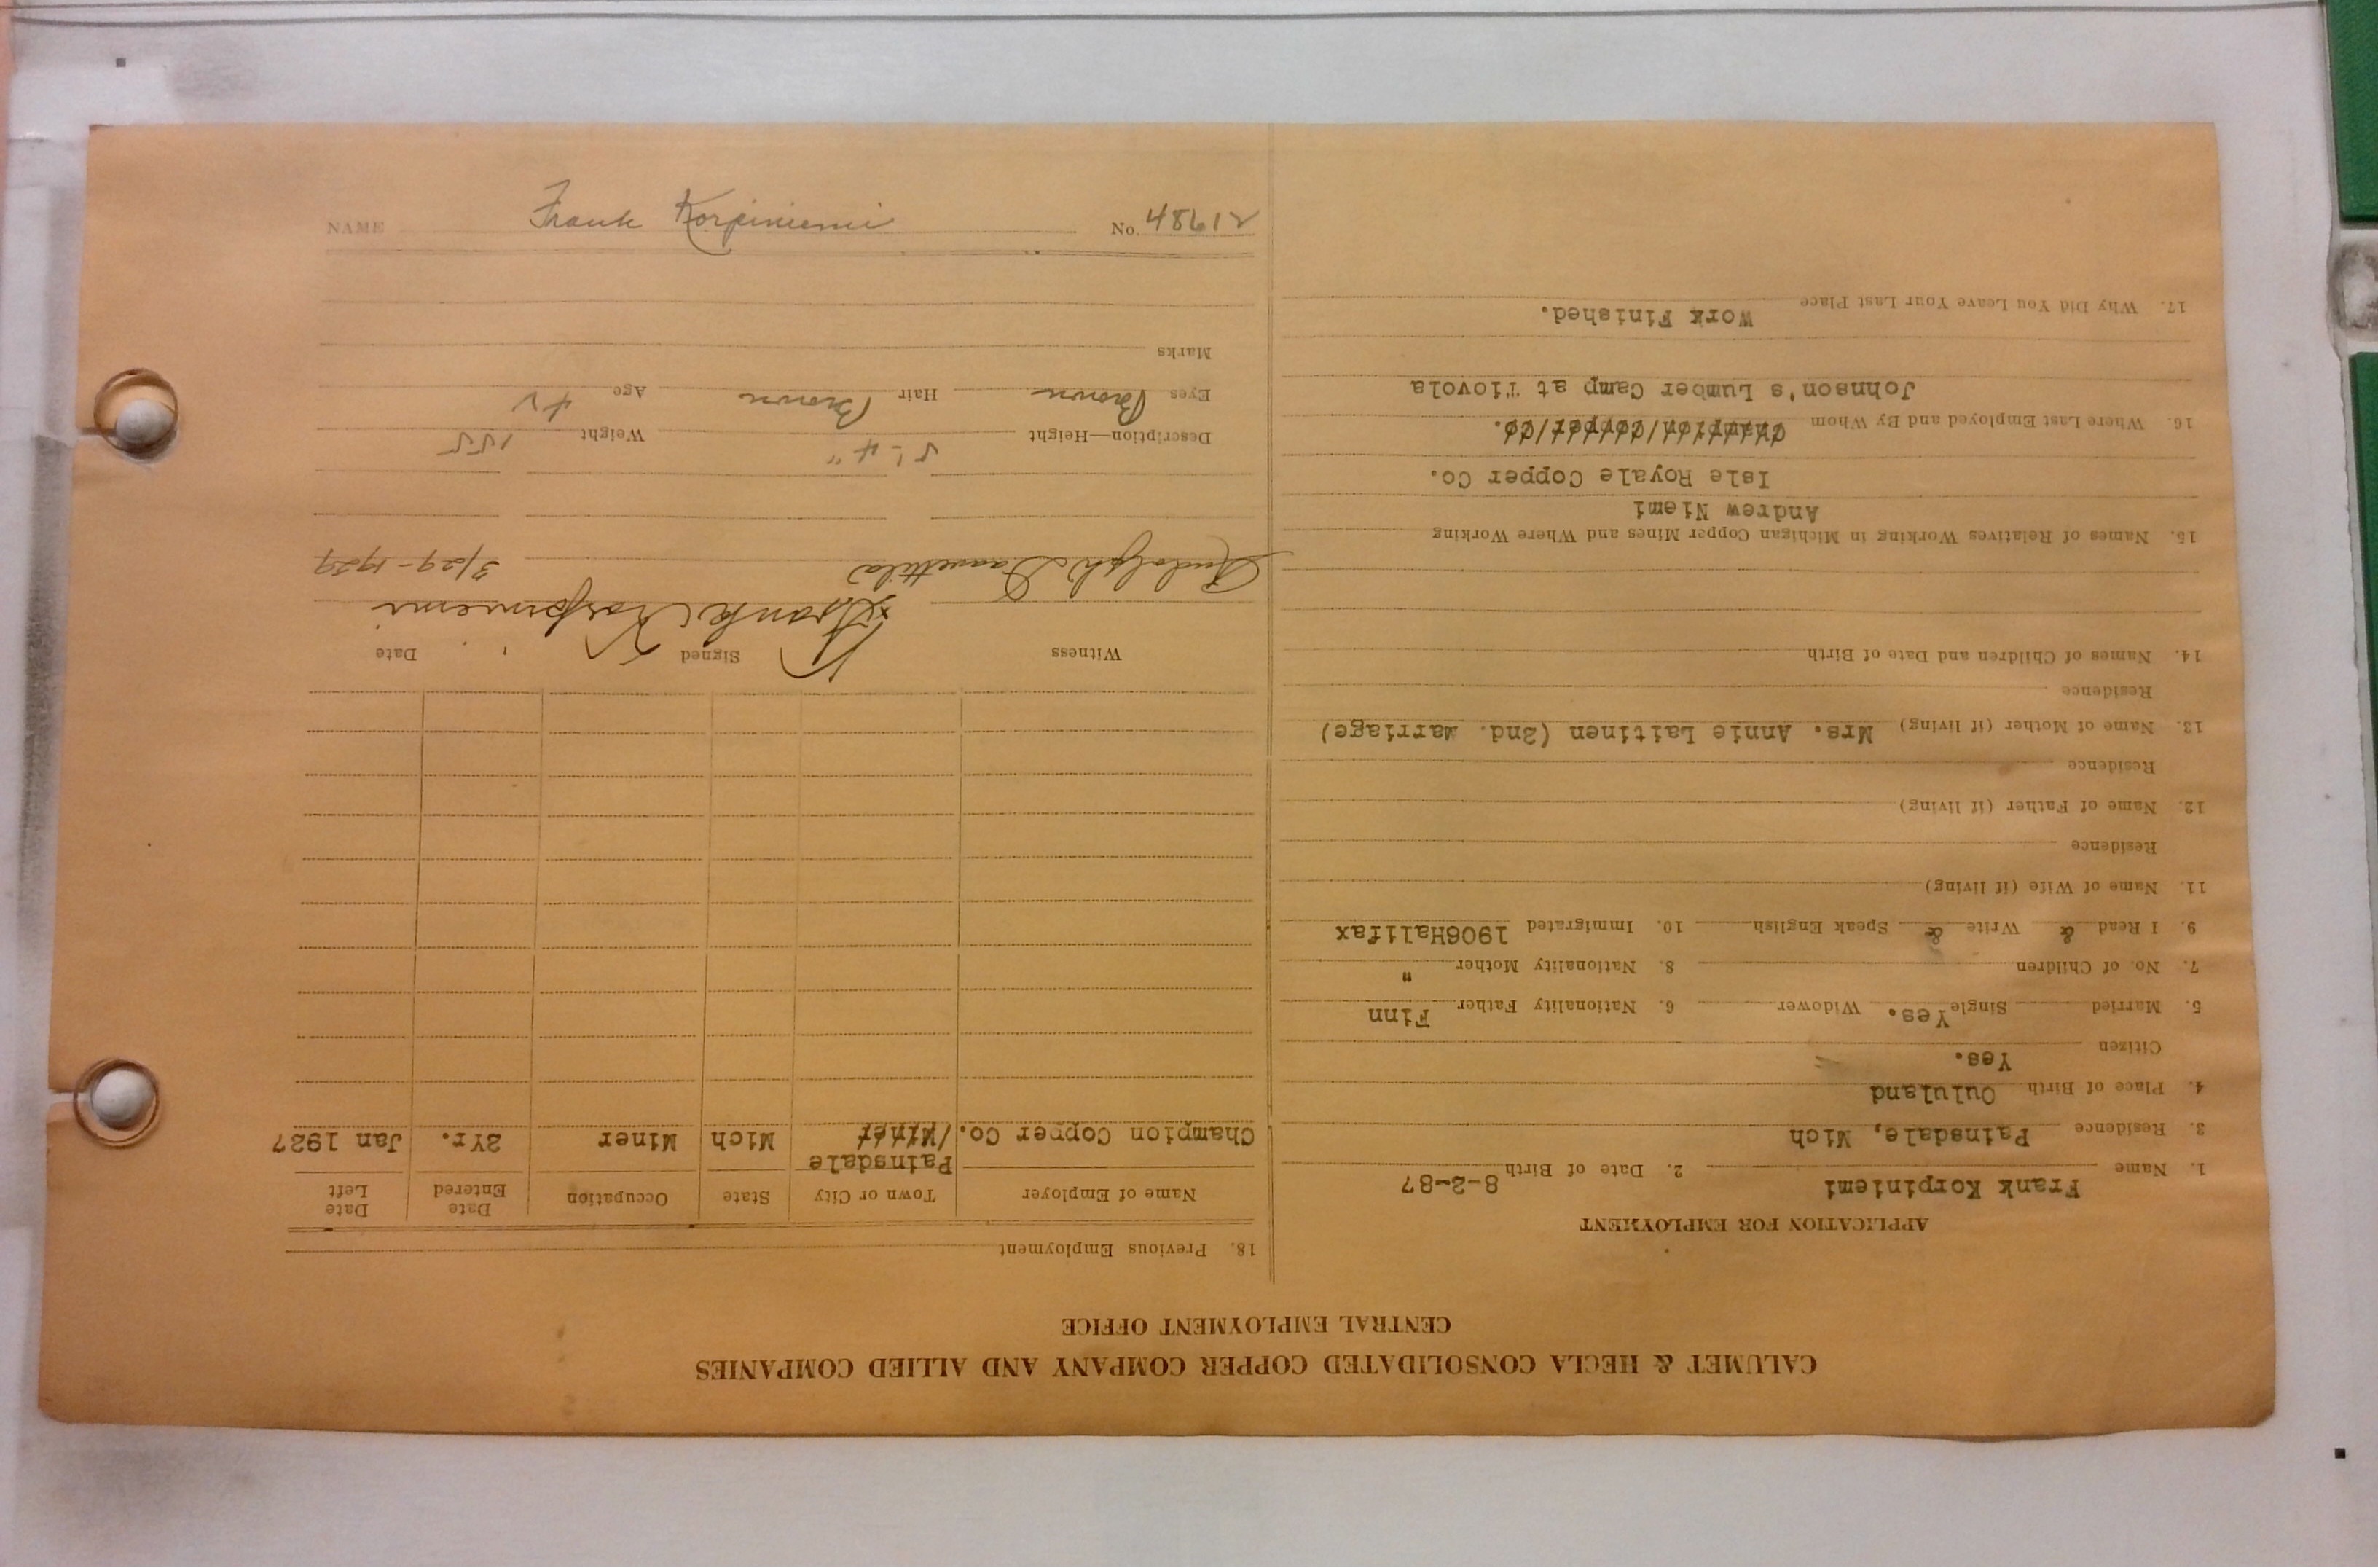 CALUMET & HECLA CONSOLIDATED COPPER COMPANY AND ALLIED COMPANIES
CENTRAL EMPLOYMENT OFFICE
APPLICATION FOR EMPLOYMENT
1. Name Frank Korpiniemi 2. Date of Birth 8-2-87
3. Residence Painsdale, Mich
4. Place of Birth Oululand
Citizen Yes.
5. Married Single Yes. Widower 6. Nationality Father Finn
7. No. of Children 8. Nationality Mother "
9. I Read & Write & Speak English 10. Immigrated 1906Halifax
11. Name of Wife (if living)
Residence
12. Name of Father (if living)
Residence
13. Name of Mother (if living) Mrs. Annie Laitinen (2nd. Marriage)
Residence
14. Names of Children and Date of Birth
15. Names of Relatives Working in Michigan Copper Mines and Where Working
Andrew Niemi
Isle Royale Copper Co.
16. Where Last Employed and By Whom Champion/Copper/Co.
Johnson's Lumber Camp at Tiovola
17. Why Did You Leave Your Last Place Work Finished.
18. Previous Employment
Name of Employer Town or City State Occupation Date Entered Date Left
Painsdale
Champion Copper Co. /Miner Mich Miner 2Yr. Jan 1927
Witness Signed Date
Frank Korpiniemi
Rudolph 3/29-1929
Description—Height 5'-4" Weight 155
Eyes Brown Hair Brown Age 42
Marks
NAME Frank Korpiniemi No. 48612